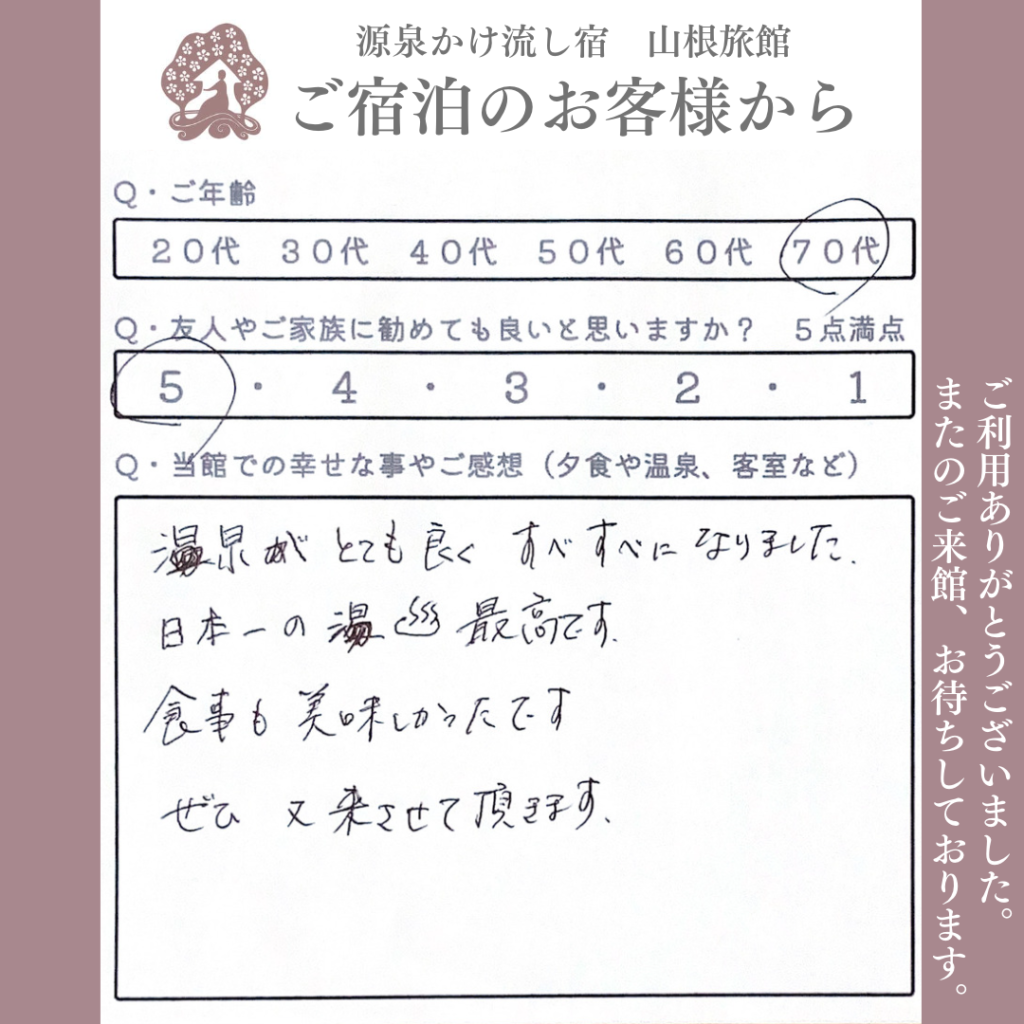 源泉かけ流し宿　山根旅館
ご宿泊のお客様から
Q・ご年齢
20代　30代　40代　50代　60代　70代
Q・友人やご家族に勧めても良いと思いますか？　5点満点
5・4・3・2・1
Q・当館での幸せな事やご感想（夕食や温泉、客室など）
温泉がとても良く すべすべになりました.
日本一の湯♨最高です.
食事も美味しかったです
ぜひ 又来させて頂きます.
ご利用ありがとうございました。
またのご来館、お待ちしております。